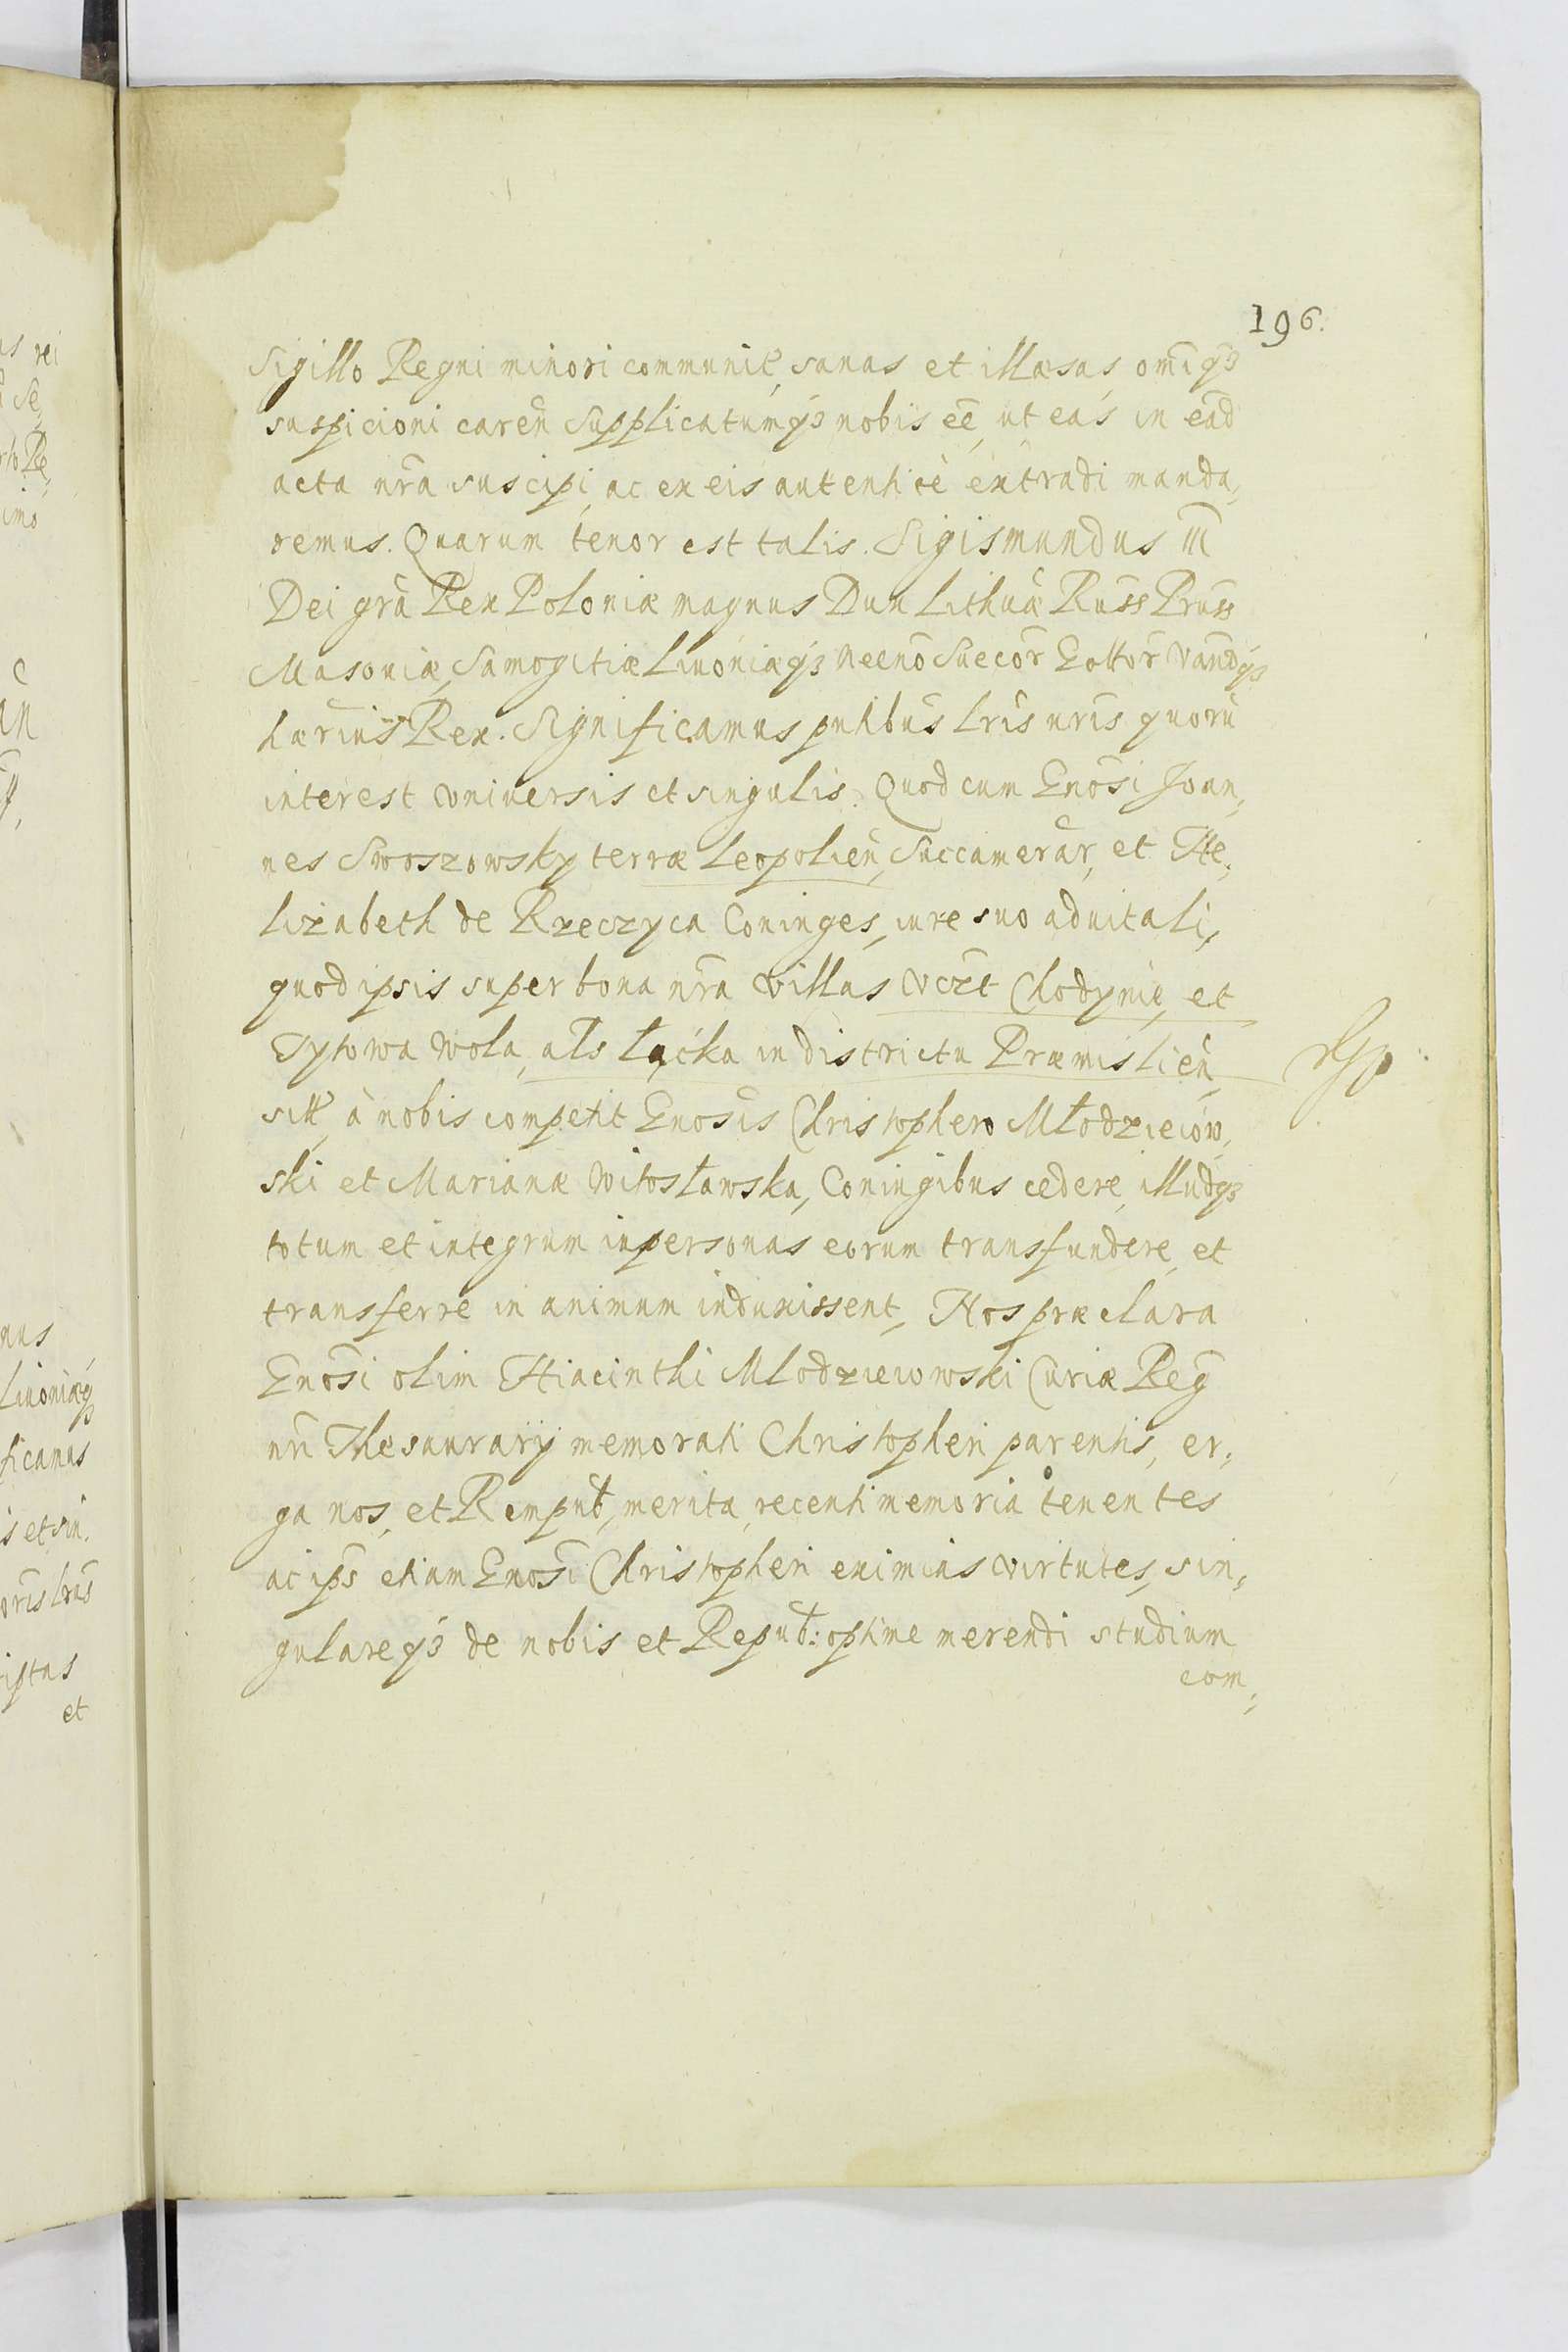 196.
Sigillo Regni minori communit̃, sanas et illæsas, om̃iqȝ
suspicioni careñ Supplicatumqȝ nobis eẽ, ut eas in eãd
acta nr̃a suscipi, ac ex eis autenticè extradi manda„
remus. Quarum tenor est talis. Sigismundus III
Dei grã Rex Poloniæ magnus Dux Lithuã Russ Pruss
Masoviæ, Samogitiæ Livoniæqȝ necnõ Suecor̃ Gottor̃ Vandqȝ
hæriũs Rex. Significamus pñtibus lr̃is nr̃is quorũ
interest vniuersis et singulis. Quod cum Gnõsi Joan„
nes Swoszowsky terræ Leopolieñ, Succamerar̃, et He„
lizabeth de Rzeczyca Coniuges, iure suo aduitali,
quod ipsis super bona nr̃a villas vczt Chodynie, et
Tytowa Wola, als Łącka in districtu Præmislieñ,
sitt̃ à nobis competit Gnõsis Christophero Młodzieiow„
ski et Marianæ Witosławska, Coniugibus cedere, illudqȝ
totum et integrum in personas eorum transfundere, et
transferre in animum induxissent, Nos præclara
Gnõsi olim Hiacinthi Mlodzieiowski Curiæ Reg̃
nr̃i Thesaurarij memorati Christopheri parentis, er„
ga nos, et Rempub̃, merita, recenti memoria tenentes
ac ips̃ etiam Gnõsi Christopheri eximias virtutes, sin„
gulareqȝ de nobis et Repub̃: optime merendi studium
com„